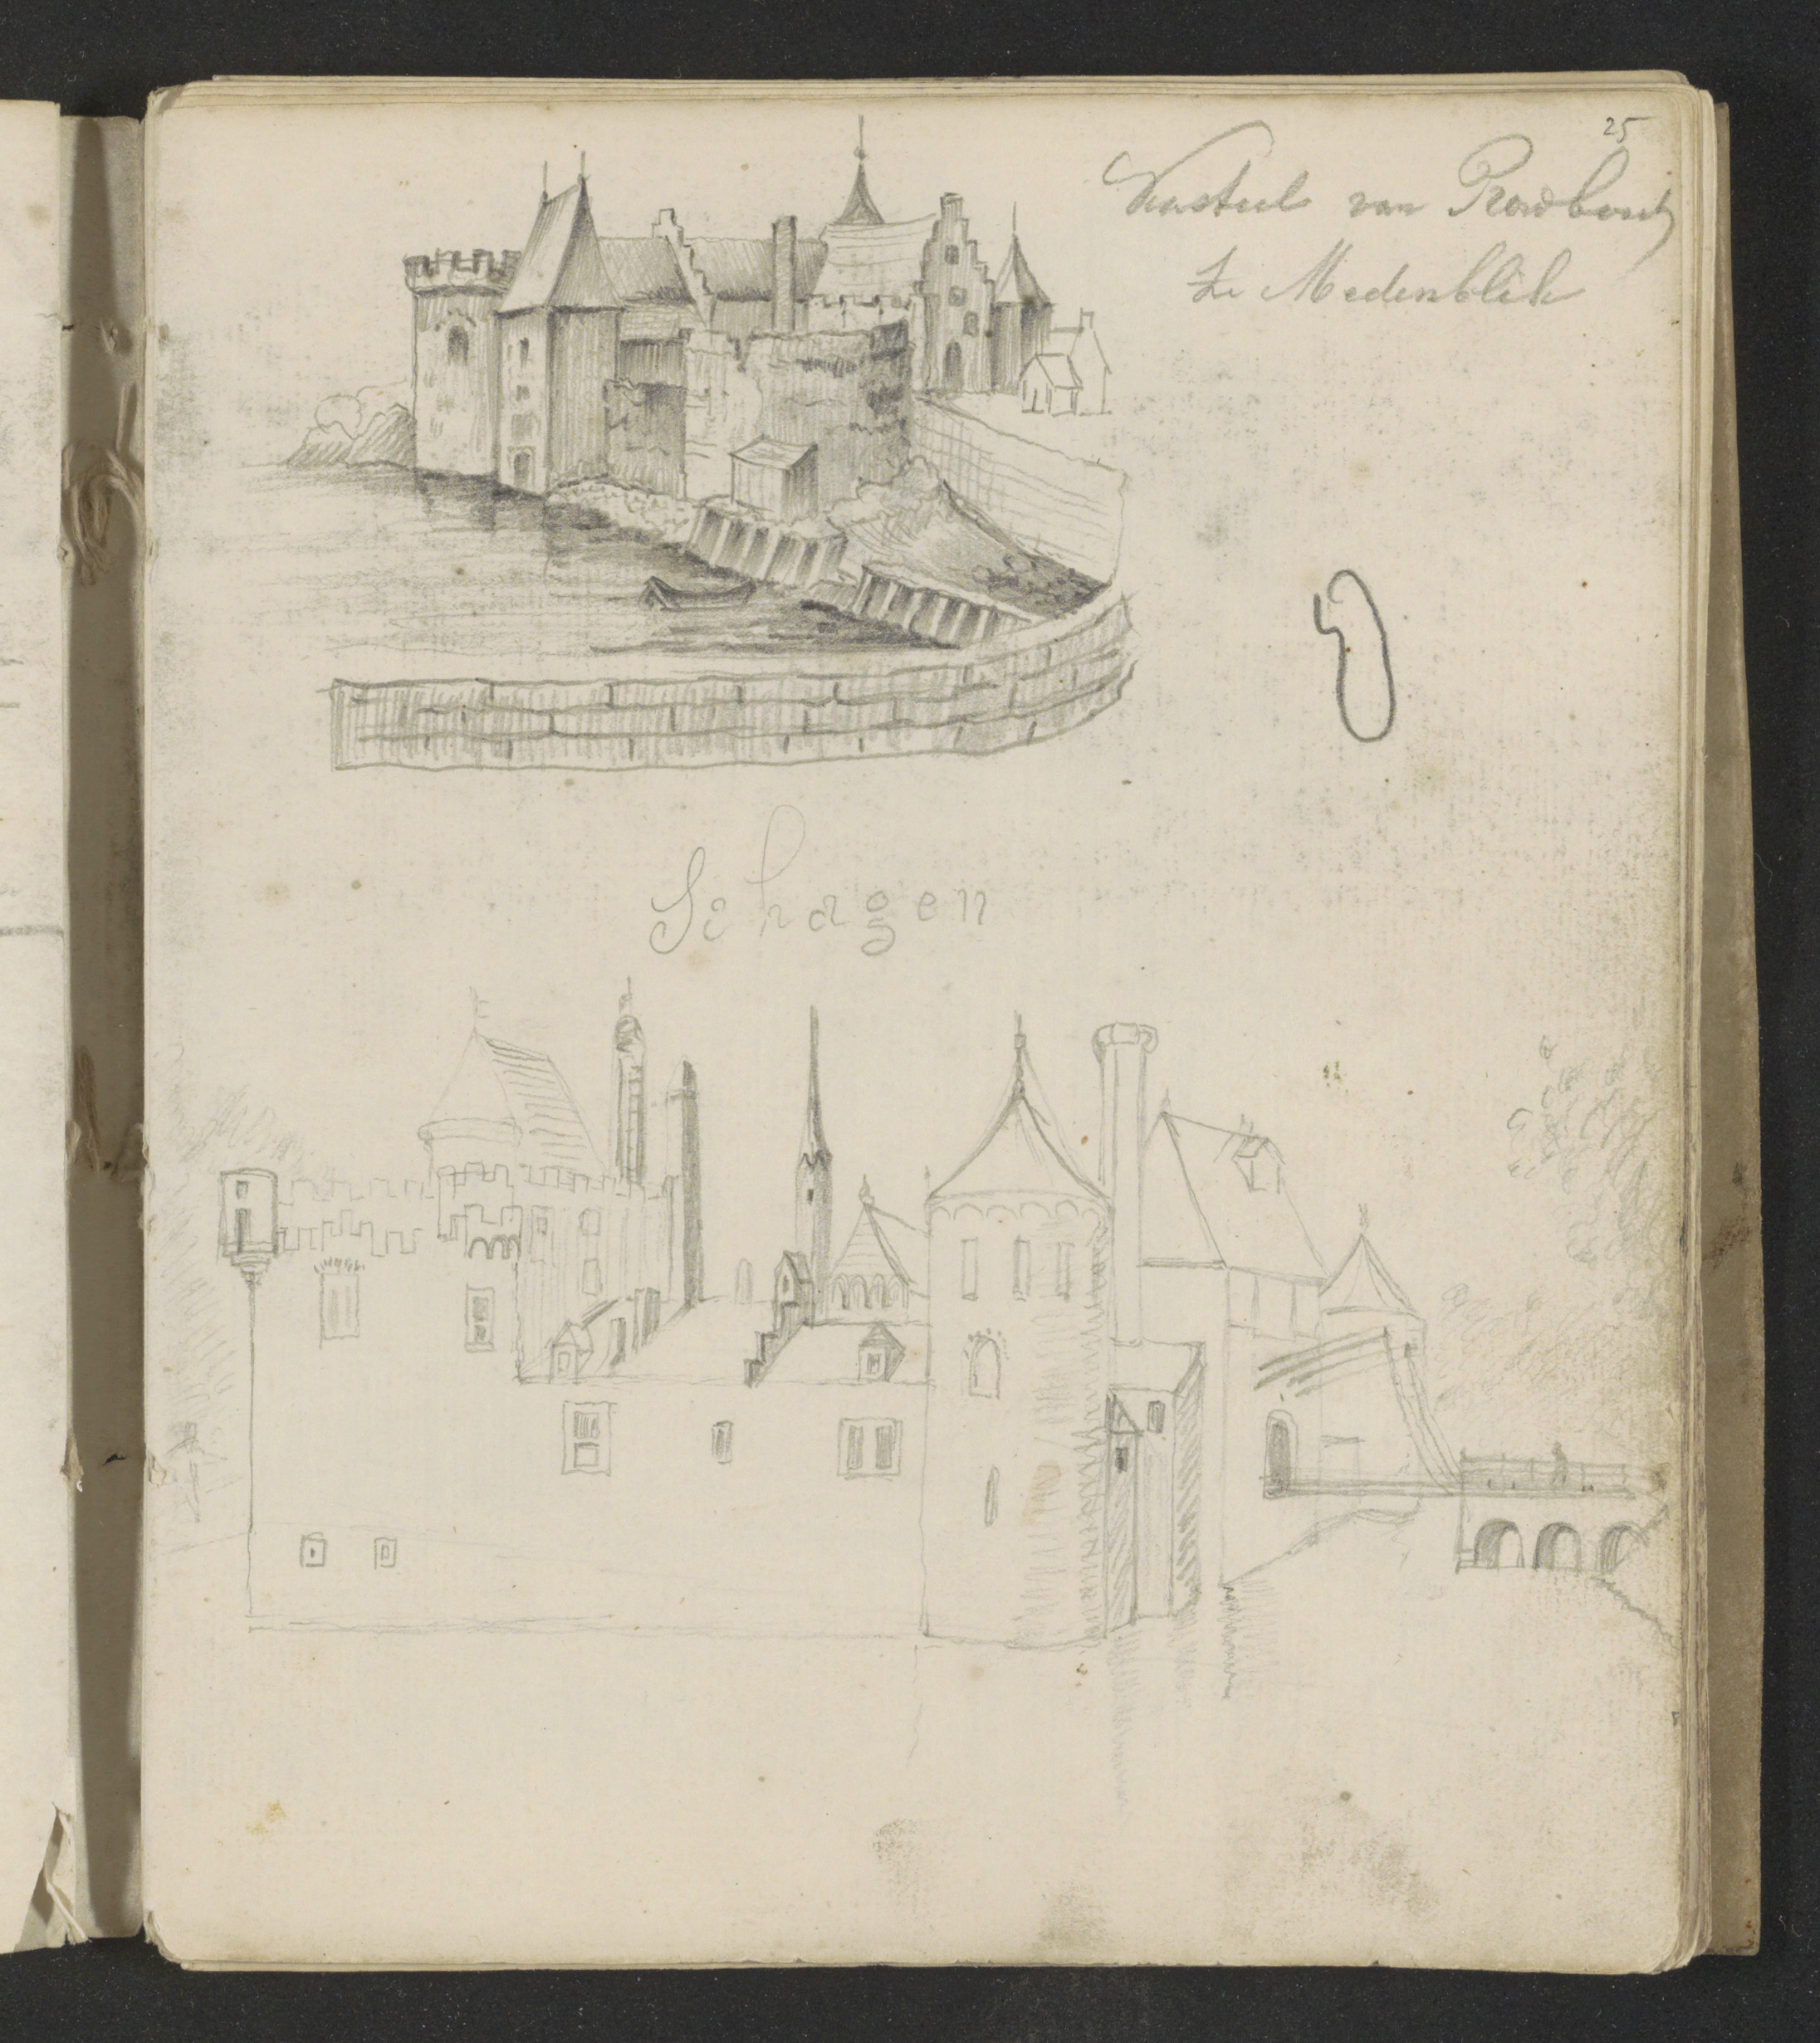 25
Kasteel van Radboud
te Medenblik
Schagen